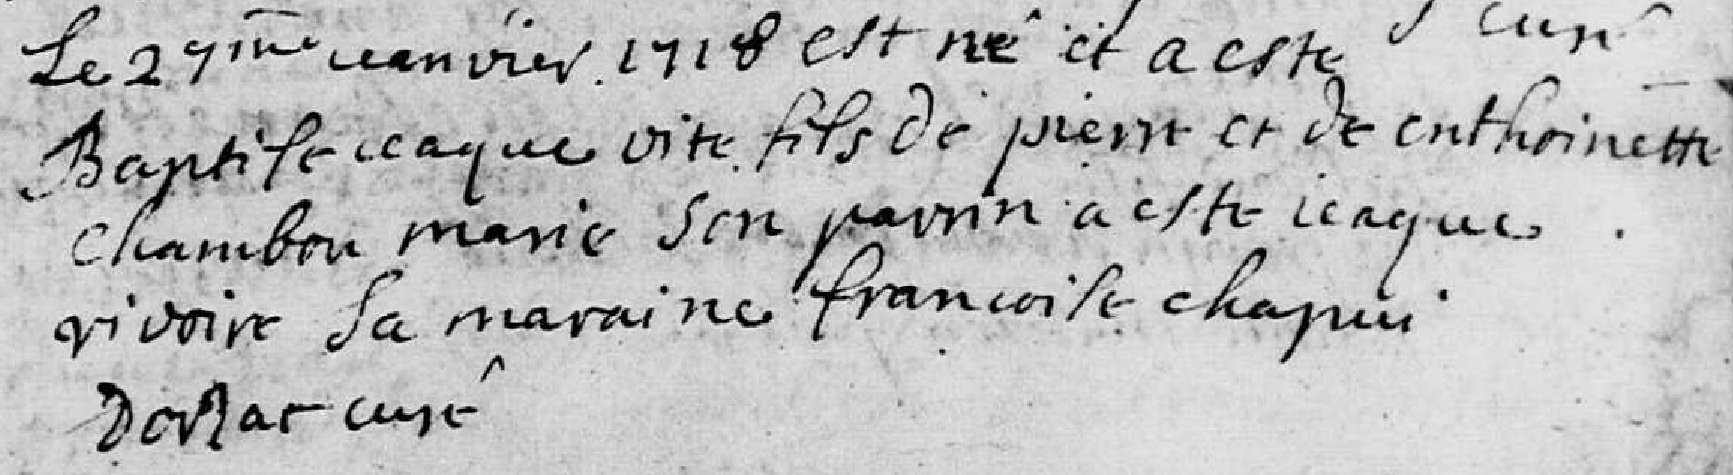 curé
Le 27me ieanvier 1718 est né et a este
Baptise ieaque vite fils de pierre et de enthoinette
Chambon marie son parrin a este ieaque
rivoire sa maraine francoise chapui
Dorzat curé